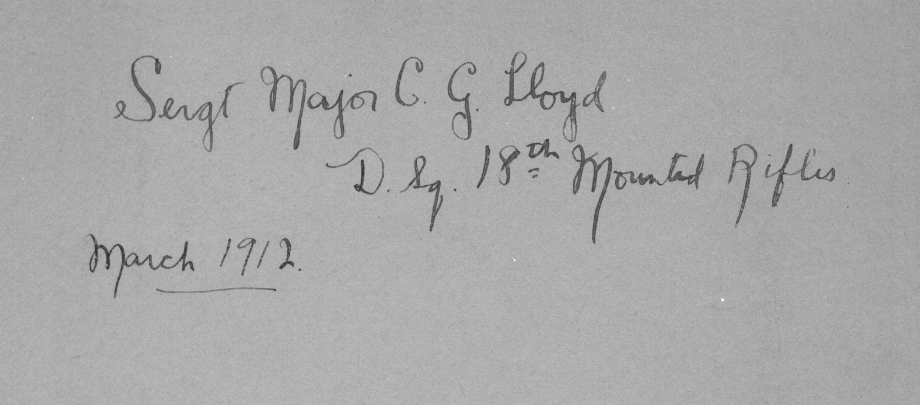 Sergt Major C. G. Lloyd
D. Sq. 18th Mounted Rifles
March 1912.